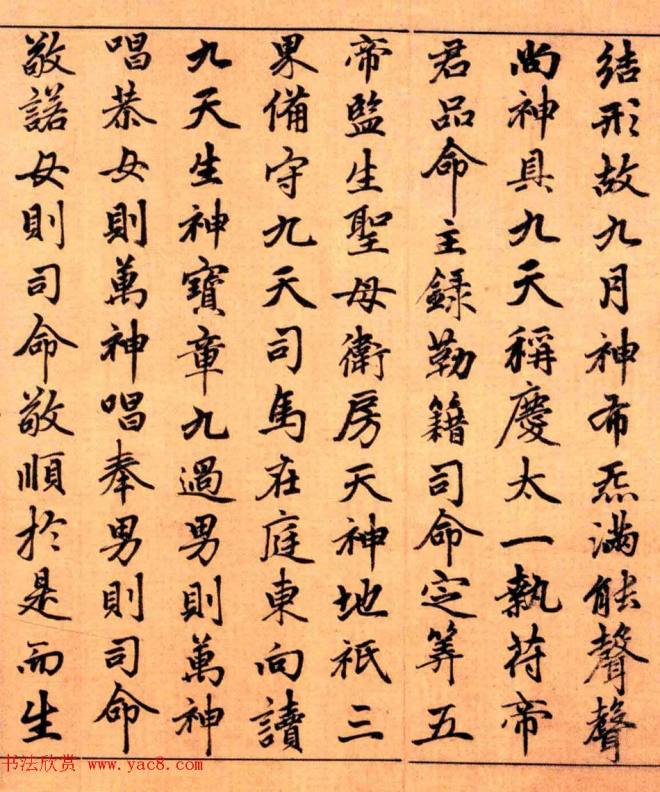 結形故九月神布炁滿能聲聲
尚神具九天稱慶太一執苻帝
君品命主錄勒籍司命定筭五
帝監生聖母衛房天神地祇三
界備守九天司馬在庭東向讀
九天生神寶章九過男則萬神
唱恭女則萬神唱奉男則司命
敬諾女則司命敬順於是而生
书法欣赏 www.yac8.com